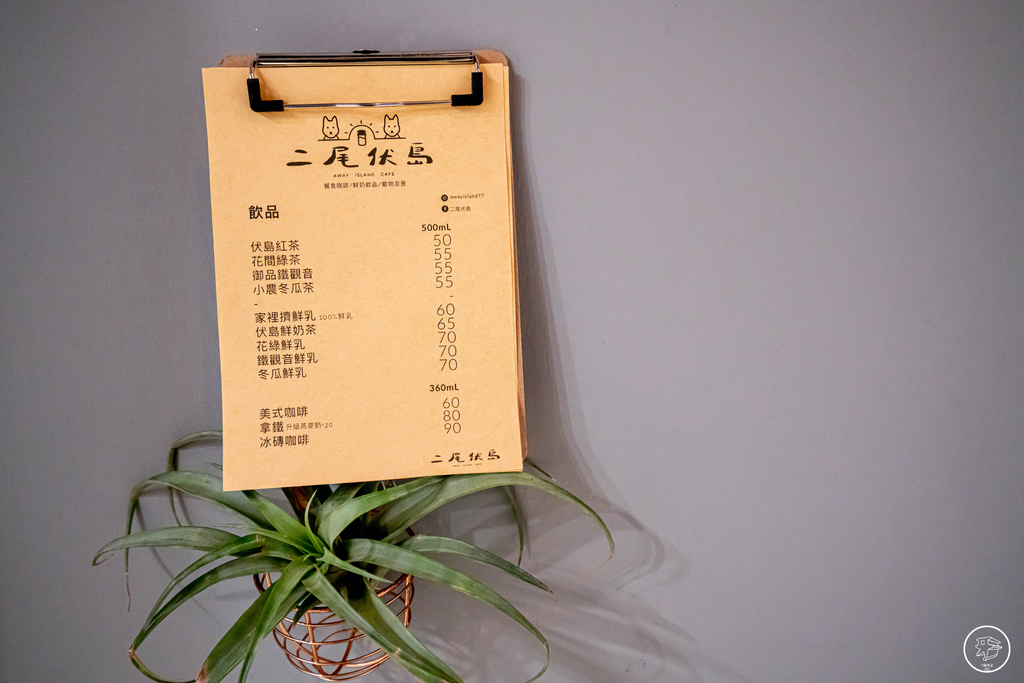 二尾伏島
AWAY ISLAND CAFE
餐食咖啡/鮮奶飲品/寵物友善
awayisland77
二尾伏島
飲品
500mL
伏島紅茶 50
花間綠茶 55
御品鐵觀音 55
小農冬瓜茶 55
- -
家裡擠鮮乳 100%鮮乳 60
伏島鮮奶茶 65
花綠鮮乳 70
鐵觀音鮮乳 70
冬瓜鮮乳 70
360mL
美式咖啡 60
拿鐵 升級燕麥奶+20 80
冰磚咖啡 90
二尾伏島
AWAY ISLAND CAFE